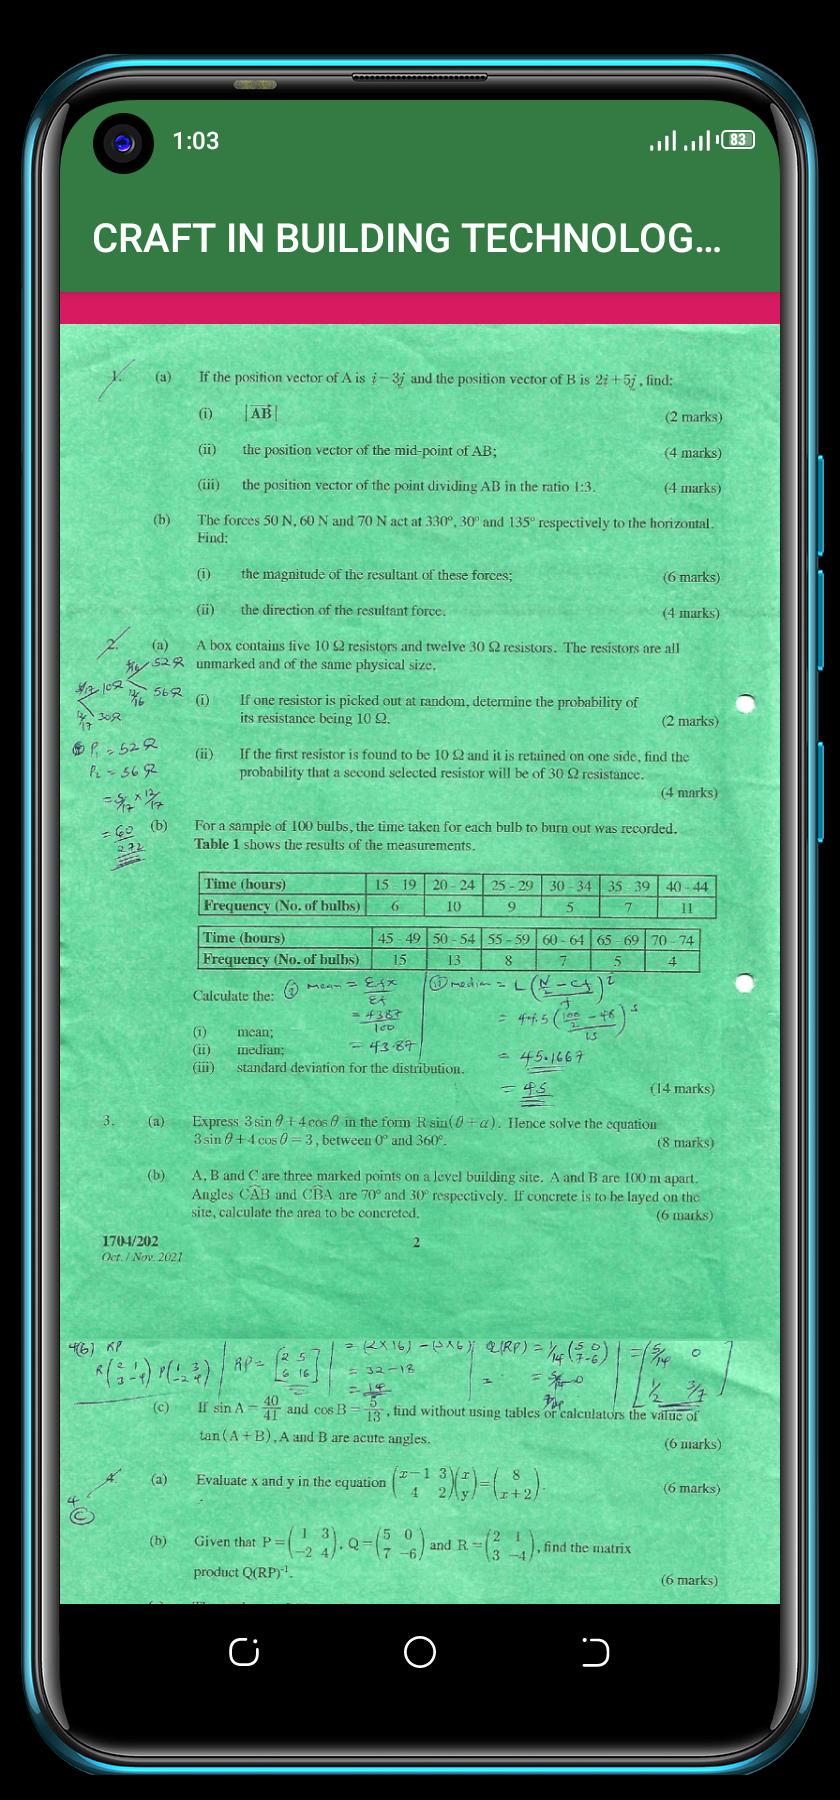 1:03
83
CRAFT IN BUILDING TECHNOLOG...
1. (a) If the position vector of A is i − 3j and the position vector of B is 2i + 5j, find:
(i) |AB| (2 marks)
(ii) the position vector of the mid-point of AB; (4 marks)
(iii) the position vector of the point dividing AB in the ratio 1:3. (4 marks)
(b) The forces 50 N, 60 N and 70 N act at 330°, 30° and 135° respectively to the horizontal.
Find:
(i) the magnitude of the resultant of these forces; (6 marks)
(ii) the direction of the resultant force. (4 marks)
2. (a) A box contains five 10 Ω resistors and twelve 30 Ω resistors. The resistors are all
unmarked and of the same physical size.
(i) If one resistor is picked out at random, determine the probability of
its resistance being 10 Ω. (2 marks)
(ii) If the first resistor is found to be 10 Ω and it is retained on one side, find the
probability that a second selected resistor will be of 30 Ω resistance.
(4 marks)
5/17 10Ω
12/17 30Ω
12/16 56Ω
P₁ = 52Ω
P₂ = 56Ω
= 5/17 × 12/17
= 60/272
(b) For a sample of 100 bulbs, the time taken for each bulb to burn out was recorded.
Table 1 shows the results of the measurements.
Time (hours) 15 - 19 20 - 24 25 - 29 30 - 34 35 - 39 40 - 44
Frequency (No. of bulbs) 6 10 9 5 7 11
Time (hours) 45 - 49 50 - 54 55 - 59 60 - 64 65 - 69 70 - 74
Frequency (No. of bulbs) 15 13 8 7 5 4
Calculate the:
(i) mean;
(ii) median;
(iii) standard deviation for the distribution.
(14 marks)
mean = Σfx/Σf
= 4387/100
= 43.87
median = L (N/2 − Cf / f) i
= 44.5 (100/2 − 48 / 15) 5
= 45.1667
= 45
3. (a) Express 3 sin θ + 4 cos θ in the form R sin(θ + α). Hence solve the equation
3 sin θ + 4 cos θ = 3, between 0° and 360°. (8 marks)
(b) A, B and C are three marked points on a level building site. A and B are 100 m apart.
Angles CAB and CBA are 70° and 30° respectively. If concrete is to be layed on the
site, calculate the area to be concreted. (6 marks)
1704/202
Oct. / Nov. 2021
2
4(b) RP
R(2 1 3 -4) P(1 3 -2 4)
RP = [2 5 6 16]
= (2×16) −
= 32−18
= 14
Q(RP) = 1/14 (5 0 7 -6)
= (5/14 0 1/2 3/7)
(c) If sin A = 40/41 and cos B = 5/13, find without using tables or calculators the value of
tan (A + B), A and B are acute angles. (6 marks)
4. (a) Evaluate x and y in the equation (x−1 3 4 2)(x y) = (8 x+2). (6 marks)
4
C
(b) Given that P = (1 3 −2 4), Q = (5 0 7 −6) and R = (2 1 3 −4), find the matrix
product Q(RP)⁻¹. (6 marks)